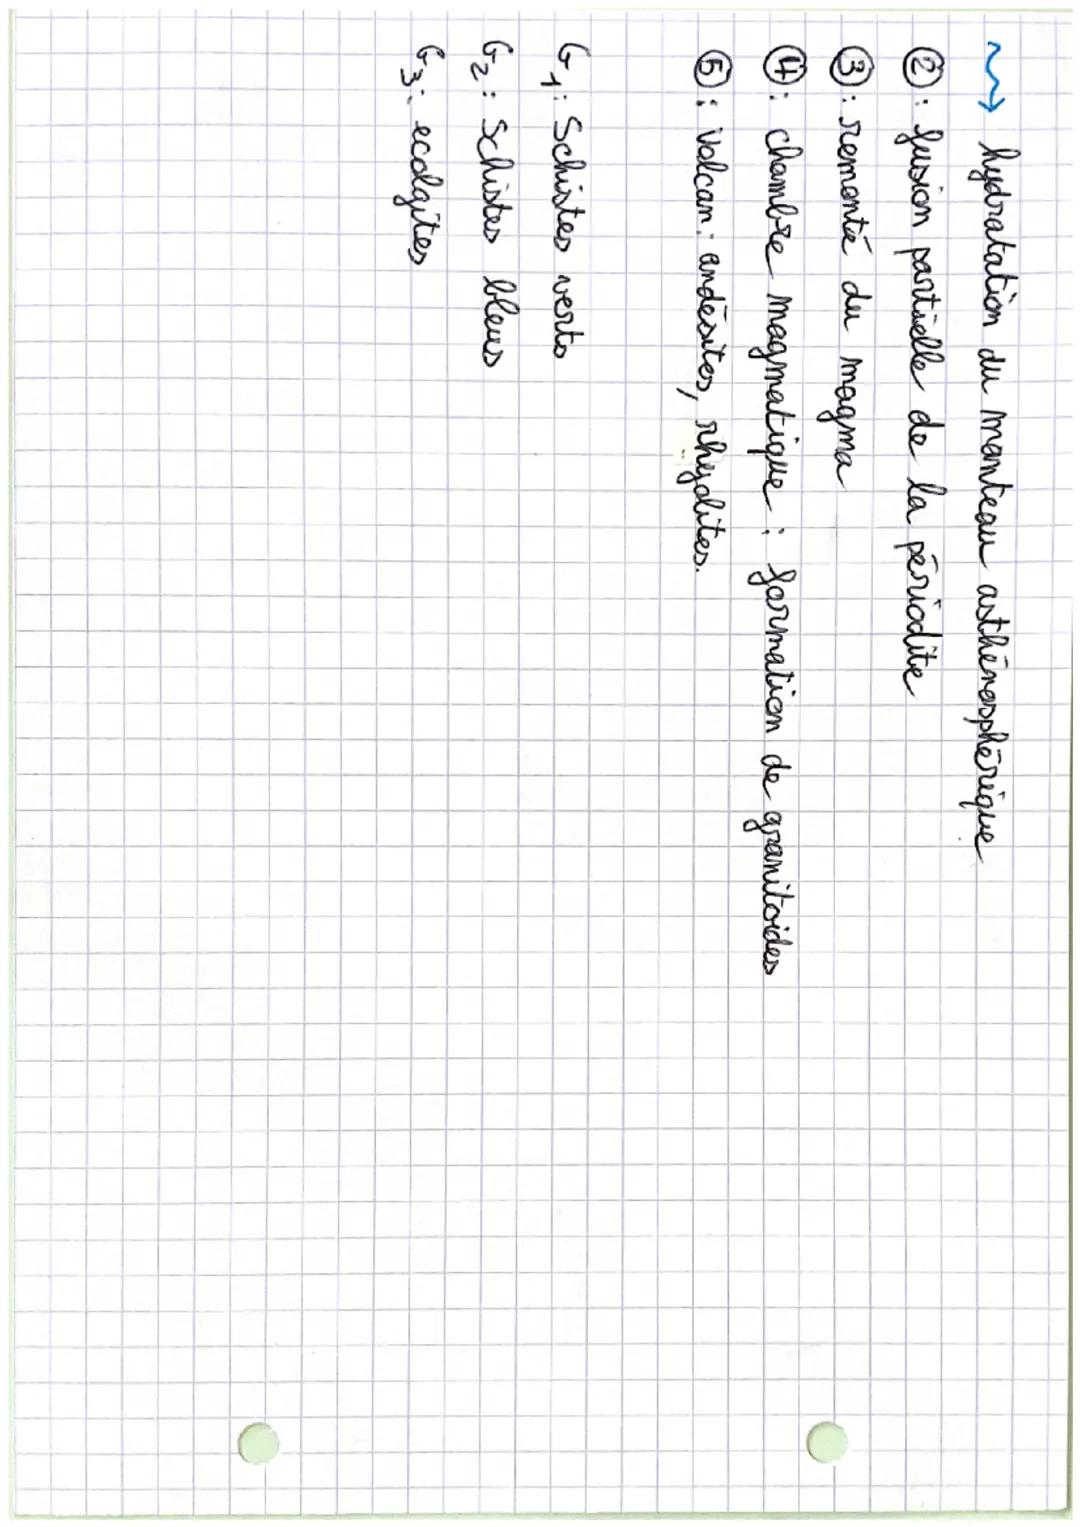 hydratation du manteau asthénosphérique
②: fusion partielle de la périodite
③: remonté du magma
④: chambre magmatique: formation de granitoides
⑤: Volcan: andésites, rhyolites.
G1: Schistes verts
G2: Schistes bleus
G3: ecolgites